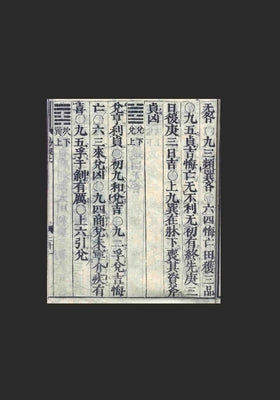 无咎○九三頻巽吝○六四悔亡田獲三品
○九五貞吉悔亡无不利无初有終先庚三
日後庚三日吉○上九巽在牀下喪其資斧
貞凶
䷹兌下兌上
兌亨利貞○初九和兌吉○九二孚兌吉悔
亡○六三來兌凶○九四商兌未寧介疾有
喜○九五孚于剝有厲○上六引兌
䷺坎下巽上